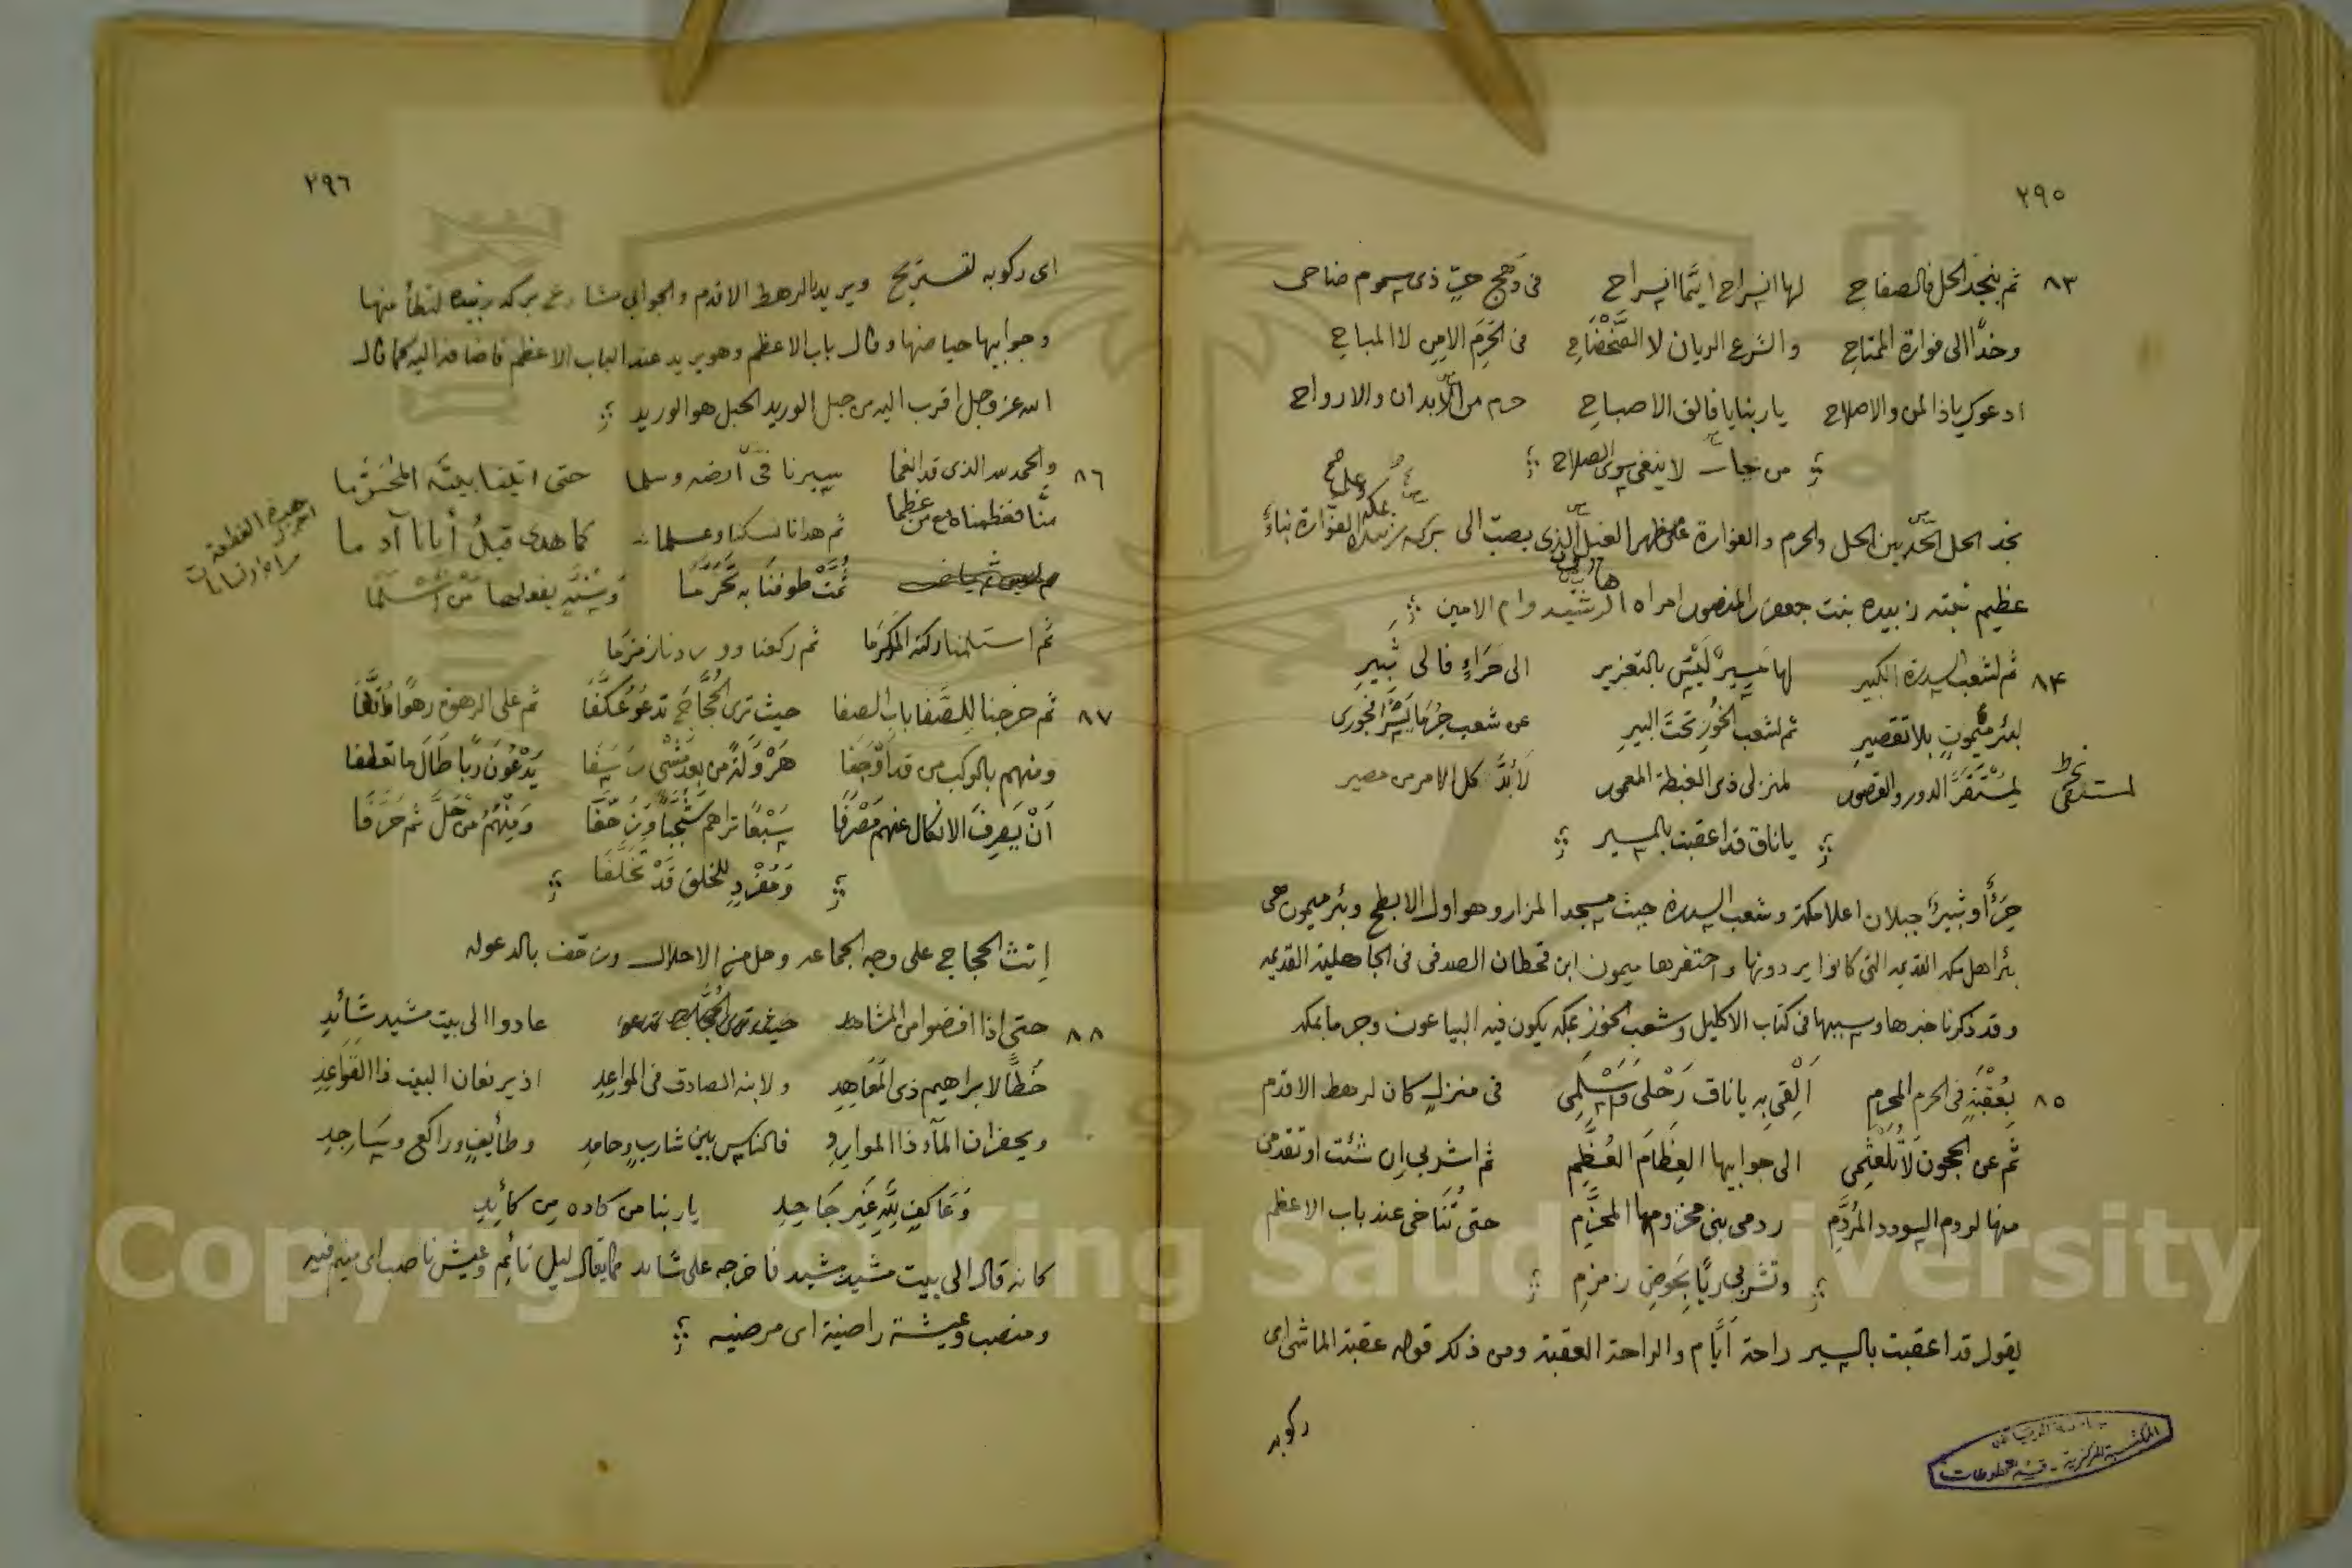 ٢٩٥
٨٣ ثم بنجد الحل فالصفاح لها انسراح ايّما انسراح فى وَهج حيٍّ ذى سموم ضاحى
وخدًا الى فوارة الممتاح والشرع الريان لا الضَّحْضَاحِ فى الحَرَم الامِن لا المباح
ادعوك ياذا المن والاصلاح يا ربنا يا فالق الاصباح حرم من الابدان والارواح
من لا ينبغى سوى الصلاح
نجد الحل الحد بين الحل والحرم والفوارة على ظهر الذى يصب الى بركة زبيدة الفوارة بناءً
عظيم بنته زبيده بنت جعفر المنصور امراه الرشيد وام الامين
٨٤ ثم لشعب السدرة الكبير لها مسيرٌ لَيْسَ بالتعزير الى حَرَاءٍ فالى ثَبيرِ
لبئر مَيْمونٍ بلا تقصيرِ ثم لشعب الخُوزِ تحتَ البيرِ عن شعب
لِمُسْتَقَرَّ الدور والقصور لمنزلى ذى الغبطة المعمور لَابُدَّ كل الامر من مصير
لمستقى نخط
يا ناق قد اعقبت بالمسير
حِرَاءٌ وثبيرٌ جبلان اعلا مكة وشعب السدرة حيث مسجد المزار وهو اول الابطح وبئر ميمون هى
بئر اهل مكه القديمه التى كانوا يردونها واحتفرها ميمون ابن قحطان الصدفى فى الجاهلية القديمه
وقد ذكرنا خبرها وسببها فى كتاب الاكليل وشعب الخوز بمكه يكون فيه البياعون وجرما بمكه
٨٥ بِعُقْبَةٍ فى الحرم المحرم اَلْقِى به يا ناق رَحْلى وَسْلَمِى فى منزلٍ كان لرهط الاقدم
ثم عن الحجون لا تَلَعْثَمِى الى جوابيها العِظَامَ العُظَّمِ ثم اشربى ان شئت او تقدمى
منها لردم السودد المُرَدَّمِ ردمى بنى مخزومها المخزّم حتى تُنَاخى عند باب الاعظم
وتشربى ريًّا بحَوضِ زمزمِ
يقول قد اعقبت بالسير راحة اَيَّام والراحة العقبة ومن ذلك قوله عقبة الماشى اى
ركوبه
٢٩٦
اى ركوبه لتستريح ويريد بالرهط الاقدم والجوابى مشارع بركه زبيده لتطأ منها
وجوابيها حياضها وقال باب الاعظم وهو يريد عند الباب الاعظم فاضافه اليه كما قال
الله عز وجل اقرب اليه من حبل الوريد الحبل هو الوريد
٨٦ والحمد لله الذى قد انعما سيرنا فى اَرضه وسلما حتى اتينا بيتَه المحَرَّما
منّا فعظمناه مع من عظما ثم هدانا نسكنا وعلما كما هدى قبلُ أبانا آدما
ثُمَّتْ طوفنا به تَحَرُّمَا وَسُنَّةٍ يفعلها مَنْ أَسْلَمَا
هذه القطعة
ثم استلمنا ركنه المكرَما ثم ركعنا ووردنا زمزمَا
٨٧ ثم خرجنا لِلصَّفا باب الصفا حيث ترى الحُجَّاجَ تدعو عُكَّفَا ثم على المرهوة رهوًا وُقَّفا
ومنهم بالركب من قد اَوْجَفا هَرْوَلةً من بعد مَشْىٍ رَسَفَا يَدْعُونَ ربًّا طَالَ ما تعطفا
اَنْ يَصرِفَ الانكال عنهم مَصْرَفًا سَبْعًا تراهم وَمِنْهُمُ مَن حَلَّ ثم
وَمُفْرِدٍ للخلق قَدْ تَخَلَّفَا
اِنث الحجاج على وجه الجماعه وحل من الاحلال بالدعوله
٨٨ حتى اذا افضوا من المشاهد عادوا الى بيت مَشيد شَائِدِ
خُطَّ لابراهيم ذى المَعَاهِدِ ولابنه الصادق فى المواعِدِ اذ يرفعان البيت ذا القَوَاعِدِ
ويحفران المآء ذا المواردِ فالناس بين شاربٍ وحامدِ وطأيفٍ وراكع وسَاجِدِ
وَعَاكِفٍ للهِ غَيرِ جَاحِدِ يا ربنا من كاده مِن كائدِ
كانه قال الى بيت مشيد مشيد فاخرجه على شايد كما يقال ليل نائم وعيش ناصب اى ينم فيه
ومنصب وعيشة راضية اى مرضيه